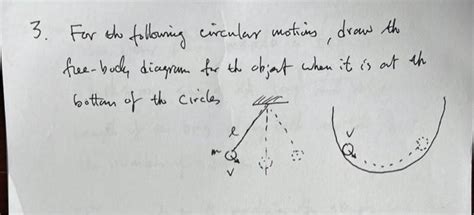 3. For the following circular motions, draw the
free-body diagram for the object when it is at the
bottom of the circles
l
m
v
v